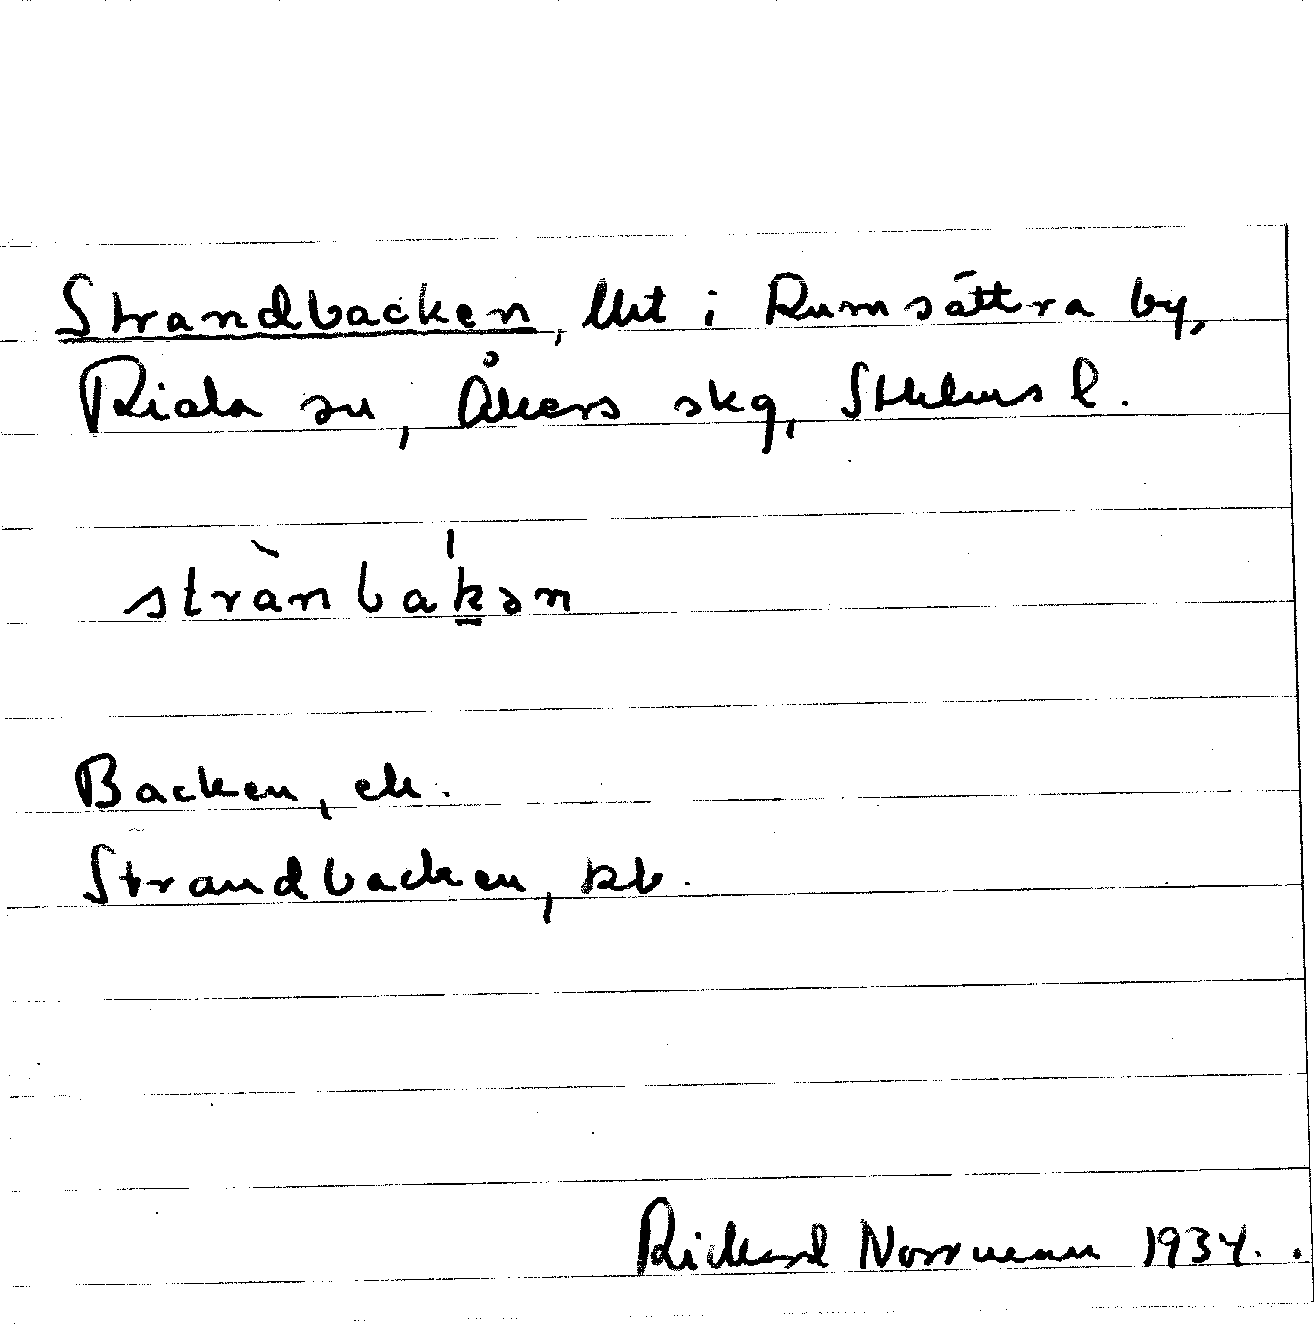 Strandbacken, lht i Rumsättra by,
Riala sn, Åkers skg, Sthlms l.
strànbak̲ən
Backen, ek.
Strandbacken, kb.
Rickard Norrman 1934.